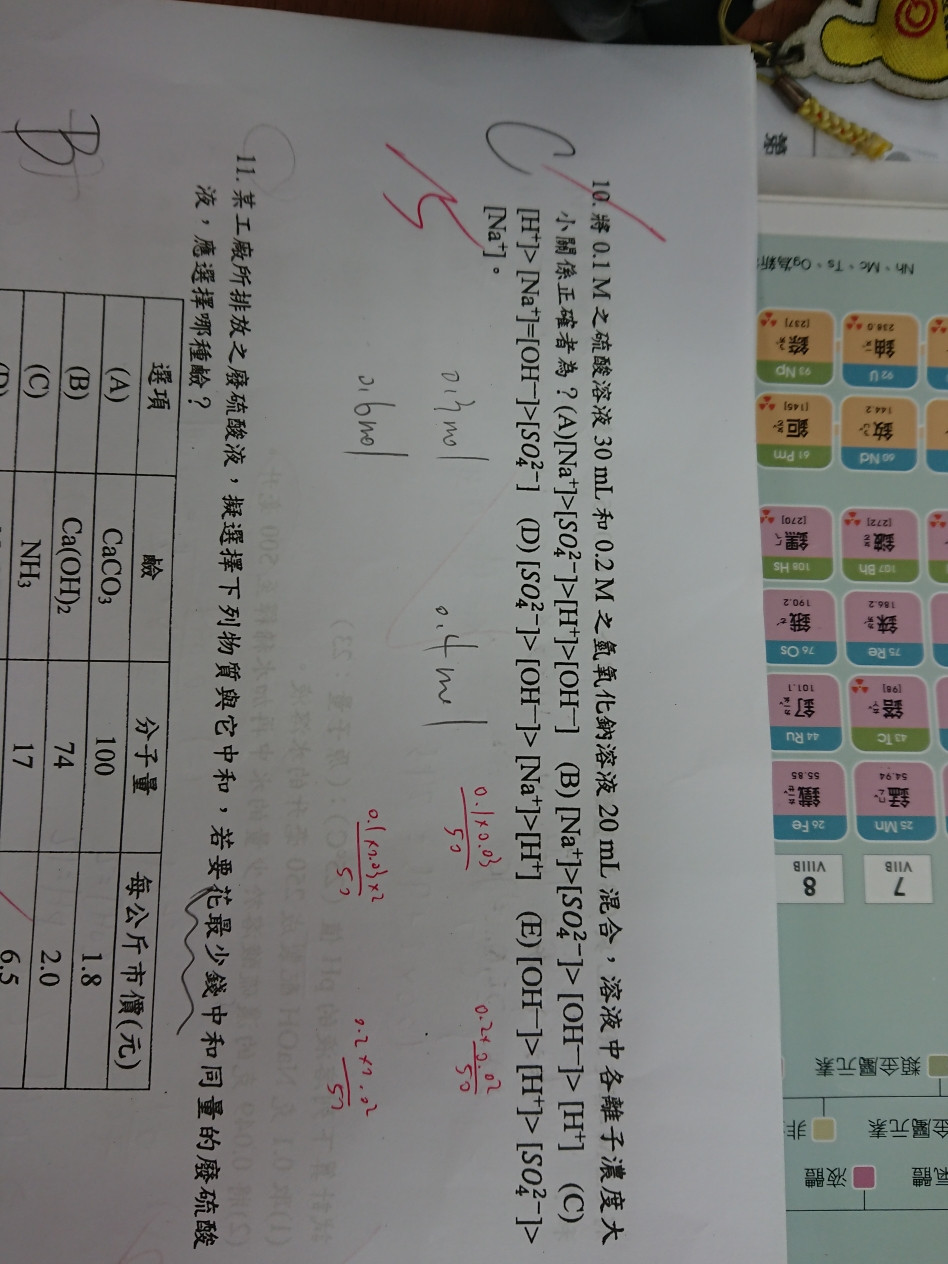 10. 將 0.1 M 之硫酸溶液 30 mL 和 0.2 M 之氫氧化鈉溶液 20 mL 混合，溶液中各離子濃度大
小關係正確者為？(A)[Na⁺]>[SO₄²⁻]>[H⁺]>[OH⁻] (B) [Na⁺]>[SO₄²⁻]> [OH⁻]> [H⁺] (C)
[H⁺]> [Na⁺]=[OH⁻]>[SO₄²⁻] (D) [SO₄²⁻]> [OH⁻]> [Na⁺]>[H⁺] (E) [OH⁻]> [H⁺]> [SO₄²⁻]>
[Na⁺]。
C
0.3 mol
0.4 mol
0.1×0.03
50
0.2×0.02
50
0.6 mol
0.1×0.03×2
50
0.2×0.02
50
11. 某工廠所排放之廢硫酸液，擬選擇下列物質與它中和，若要花最少錢中和同量的廢硫酸
液，應選擇哪種鹼？
B
選項 鹼 分子量 每公斤市價(元)
(A) CaCO₃ 100 1.8
(B) Ca(OH)₂ 74 2.0
(C) NH₃ 17 6.5
(D)
第
Nh、Mc、Ts、Og為新
7 VIIB
8 VIIIB
25 Mn 錳 54.94
26 Fe 鐵 55.85
43 Tc 鎝 [98]
44 Ru 釕 101.1
75 Re 錸 186.2
76 Os 鋨 190.2
107 Bh 𨨏 [272]
108 Hs 𨭆 [270]
60 Nd 釹 144.2
61 Pm 鉕 [145]
92 U 鈾 238.0
93 Np 錼 [237]
類金屬元素
金屬元素
非
液體
氣體